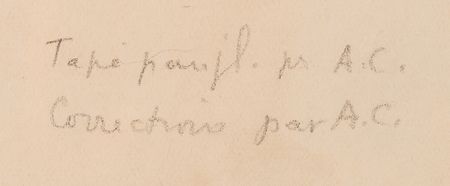 Tapé par fl. pr A.C.
Corrections par A.C.